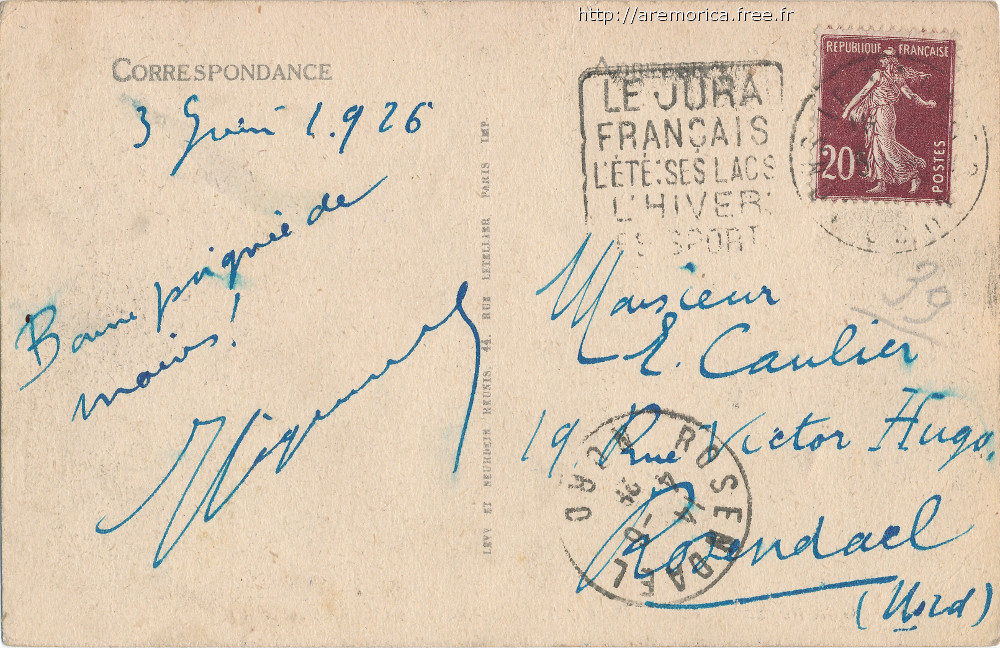 http://aremorica.free.fr
CORRESPONDANCE
3 Juin 1.926
Bonne poignée de
mains!
LEVY ET NEURDEIN REUNIS, 44, RUE LETELLIER, PARIS IMP
LE JURA
FRANÇAIS
L'ÉTÉ: SES LACS
L'HIVER:
SES SPORT
REPUBLIQUE FRANÇAISE
20c
POSTES
39
Monsieur
E. Caulier
19 Rue Victor Hugo
Rosendael
(Nord)
ROSENDAEL
NORD